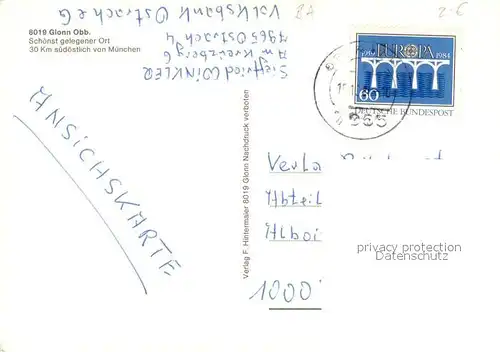 8019 Glonn Obb.
Schönst gelegener Ort
30 Km südöstlich von München
Siegfried WINKLER
Am Kreuzberg 6
7965 Ostrach 4
Volksbank Ostrach eG
2-€
1959 EUROPA 1984
60
DEUTSCHE BUNDESPOST
7965
ANSICHSKARTE
Verlag F. Hintermaier 8019 Glonn Nachdruck verboten
Verla
Abteil
Alboi
1000
privacy protection
Datenschutz